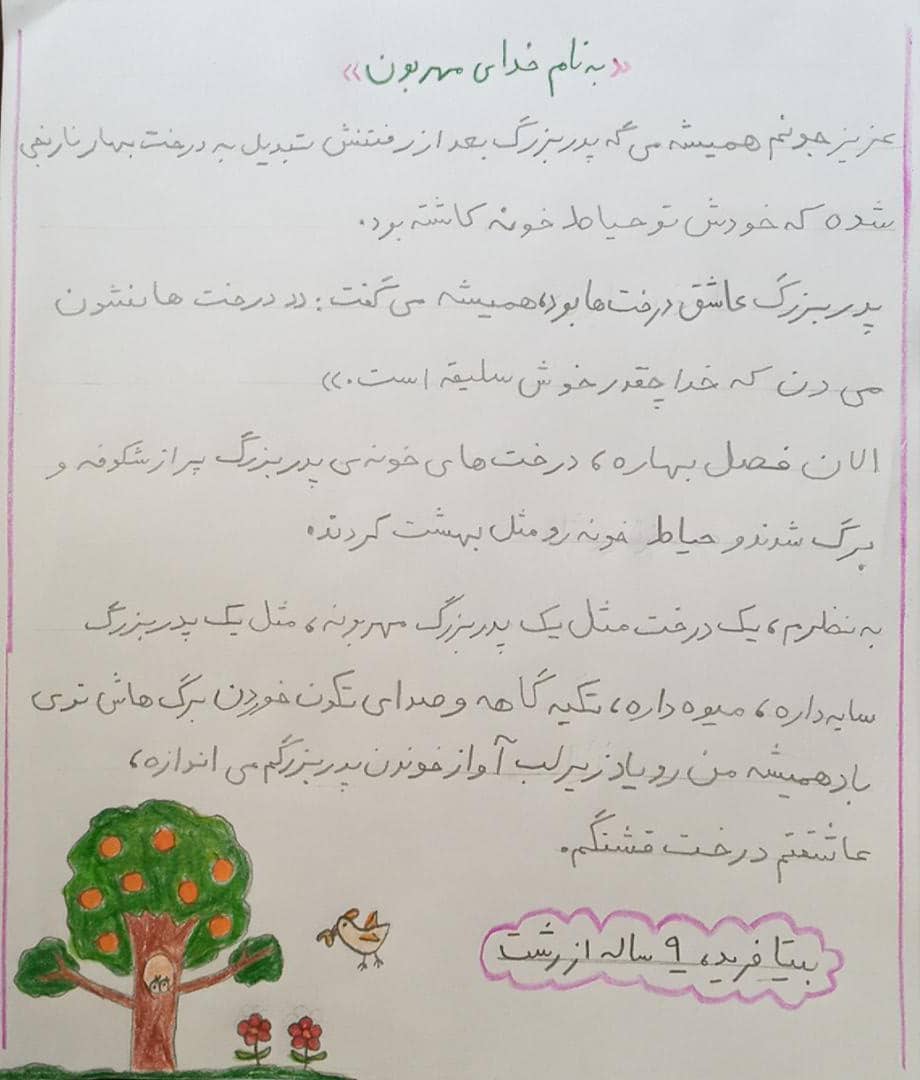 «به نام خدای مهربون»
عزیزجونم همیشه می گه پدربزرگ بعد از رفتنش تبدیل به درخت بهارنارنجی
شده که خودش تو حیاط خونه کاشته بود.
پدربزرگ عاشق درخت ها بود، همیشه می گفت: «درخت ها نشون
می دن که خدا چقدر خوش سلیقه است.»
الان فصل بهاره، درخت های خونه ی پدربزرگ پر از شکوفه و
برگ شدند و حیاط خونه رو مثل بهشت کردند.
به نظرم، یک درخت مثل یک پدربزرگ مهربونه، مثل یک پدربزرگ
سایه داره، میوه داره، تکیه گاهه و صدای تکون خوردن برگ هاش توی
باد همیشه من رو یاد زیر لب آواز خوندن پدربزرگم می اندازه،
عاشقتم درخت قشنگم.
بیتا فرید، ۹ ساله از رشت